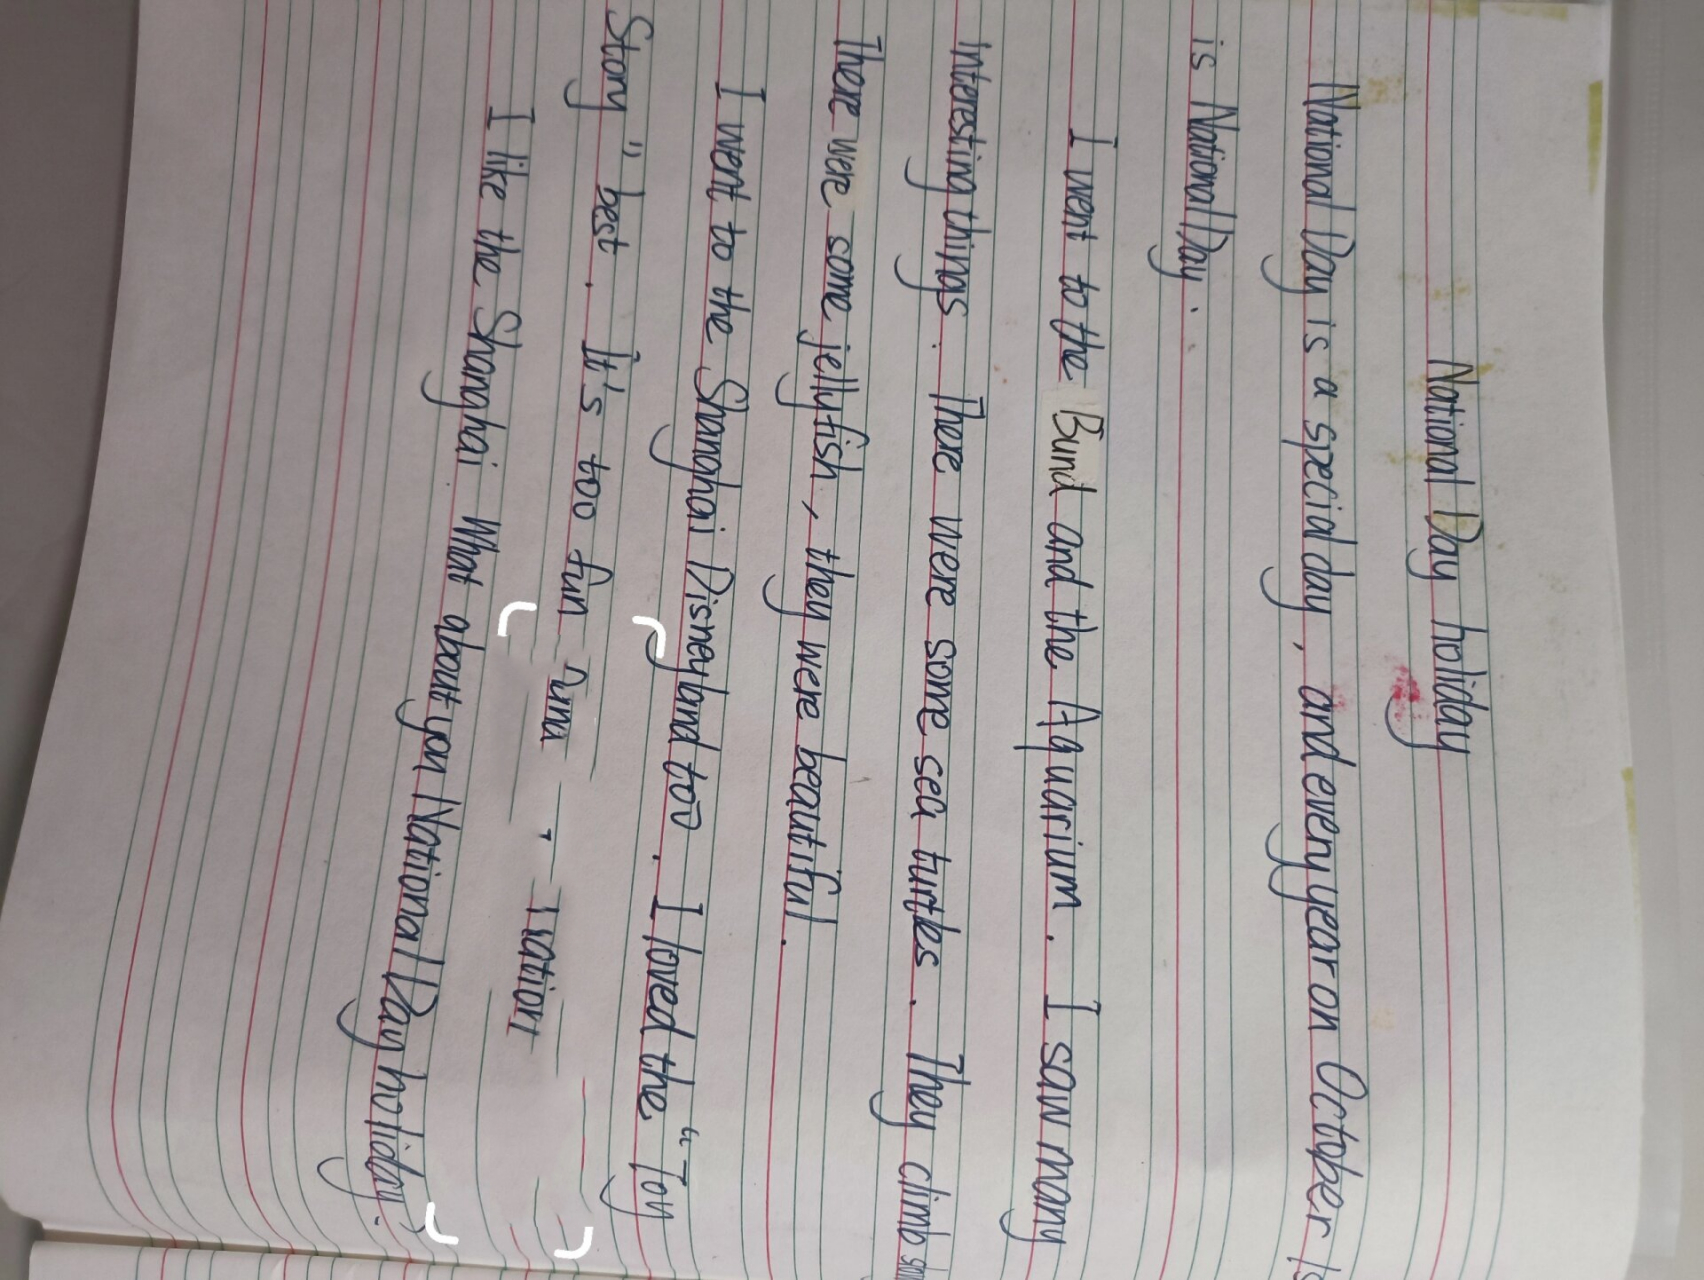 National Day holiday
National Day is a special day, and every year on October 1s
is National Day.
I went to the Bund and the Aquarium. I saw many
Interesting things. There were some sea turtles. They climb
There were some jellyfish, they were beautiful.
I went to the Shanghai Disneyland too. I loved the "Toy
Story" best. It's too fun
I like the Shanghai What about you National Day holiday.